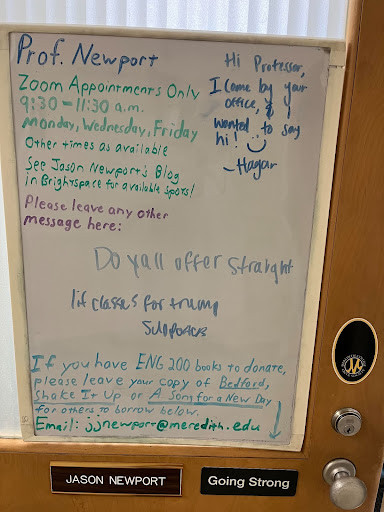 Prof. Newport
Zoom Appointments Only
9:30 - 11:30 a.m.
Monday, Wednesday, Friday
Other times as available
See Jason Newport's Blog
in Brightspace for available spots!
Please leave any other
message here:
Hi Professor,
I came by your
office, & I
wanted to say
hi! :)
~Hagar
Do yall offer straight
lit classes for trump
If you have ENG 200 books to donate,
please leave your copy of Bedford,
Shake It Up or A Song for a New Day
for others to borrow below.
Email: jjnewport@meredith.edu
JASON NEWPORT
Going Strong